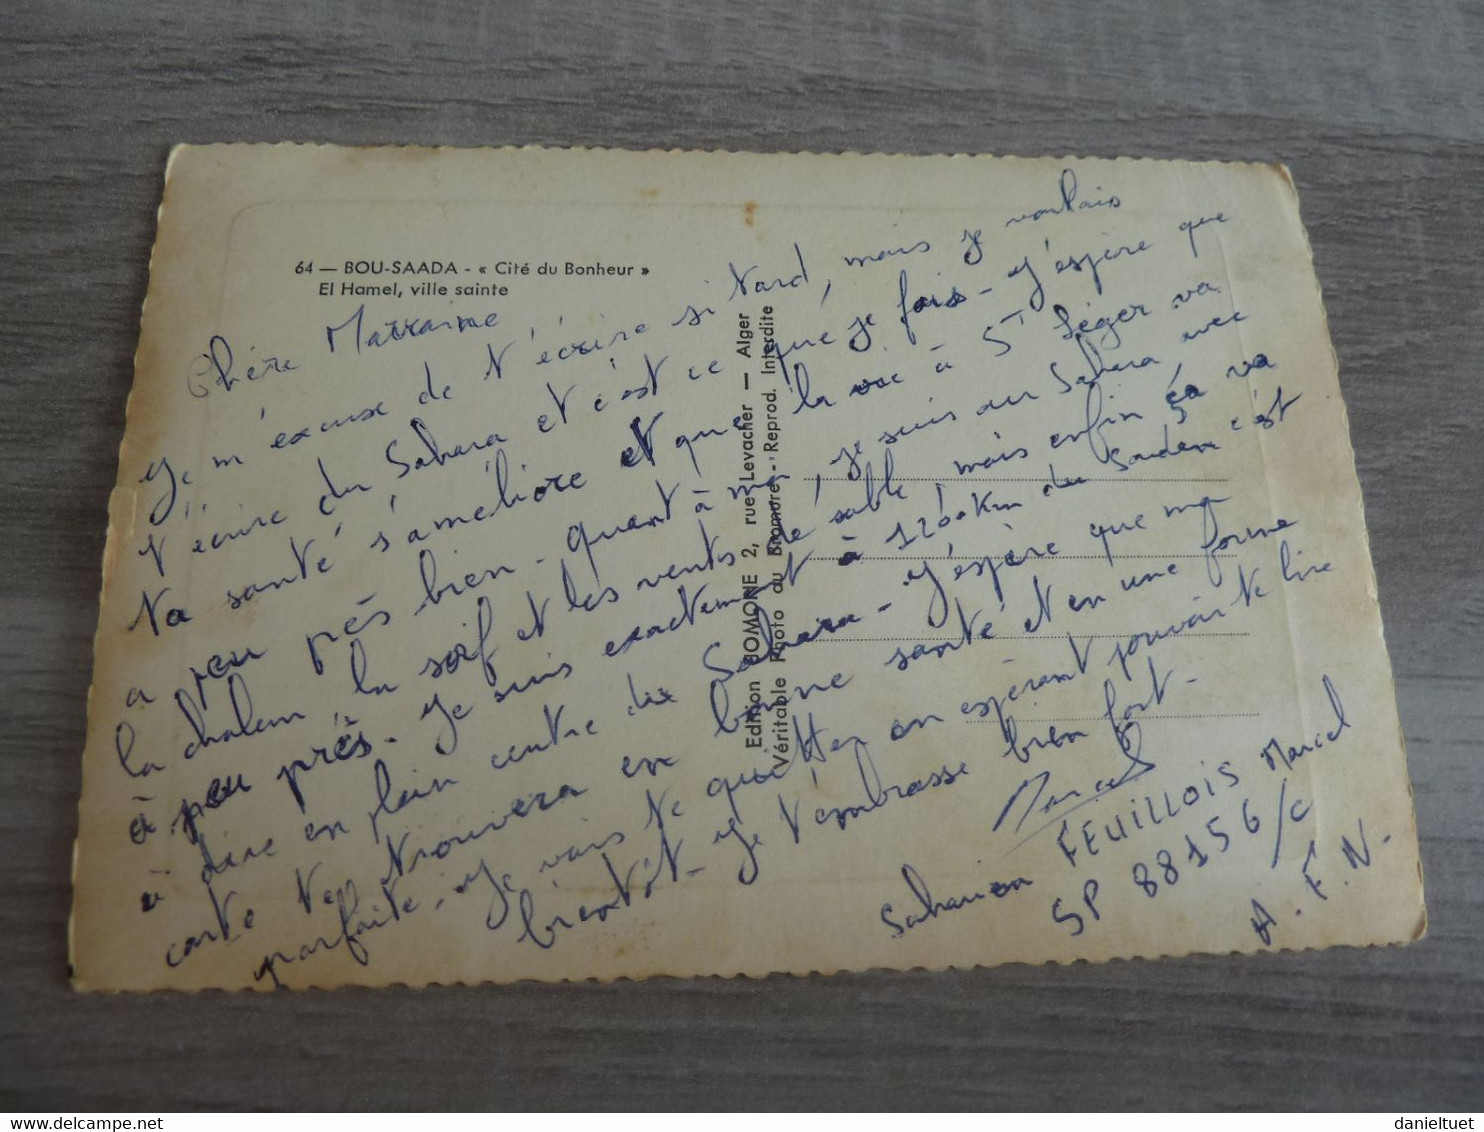 64 — BOU-SAADA - « Cité du Bonheur »
El Hamel, ville sainte
Chère Marraine
Je m'éxcuse de t'écrire si tard, mais je voulais
t'écrire du Sahara et c'est ce que je fais - J'espère que
ta santé s'améliore et que la vie à St Léger va
a peu près bien - quant à moi, je suis au Sahara avec
la chaleur la soif et les vents de sable, mais enfin ça va
à peu près - Je suis exactement à 1200 Km du Soudan c'est
à dire en plein centre du Sahara - J'espère que ma
carte te trouvera en bonne santé et en une forme
parfaite - Je vais te quitter en espérant pouvoir te lire
bientôt - Je t'embrasse bien fort -
Marcel
Saharien FEUILLOIS Marcel
SP 88156/C
A.F.N.
Edition JOMONE 2, rue Levacher — Alger
Véritable Photo du Bromure - Reprod. Interdite
delcampe.net
danieltuet